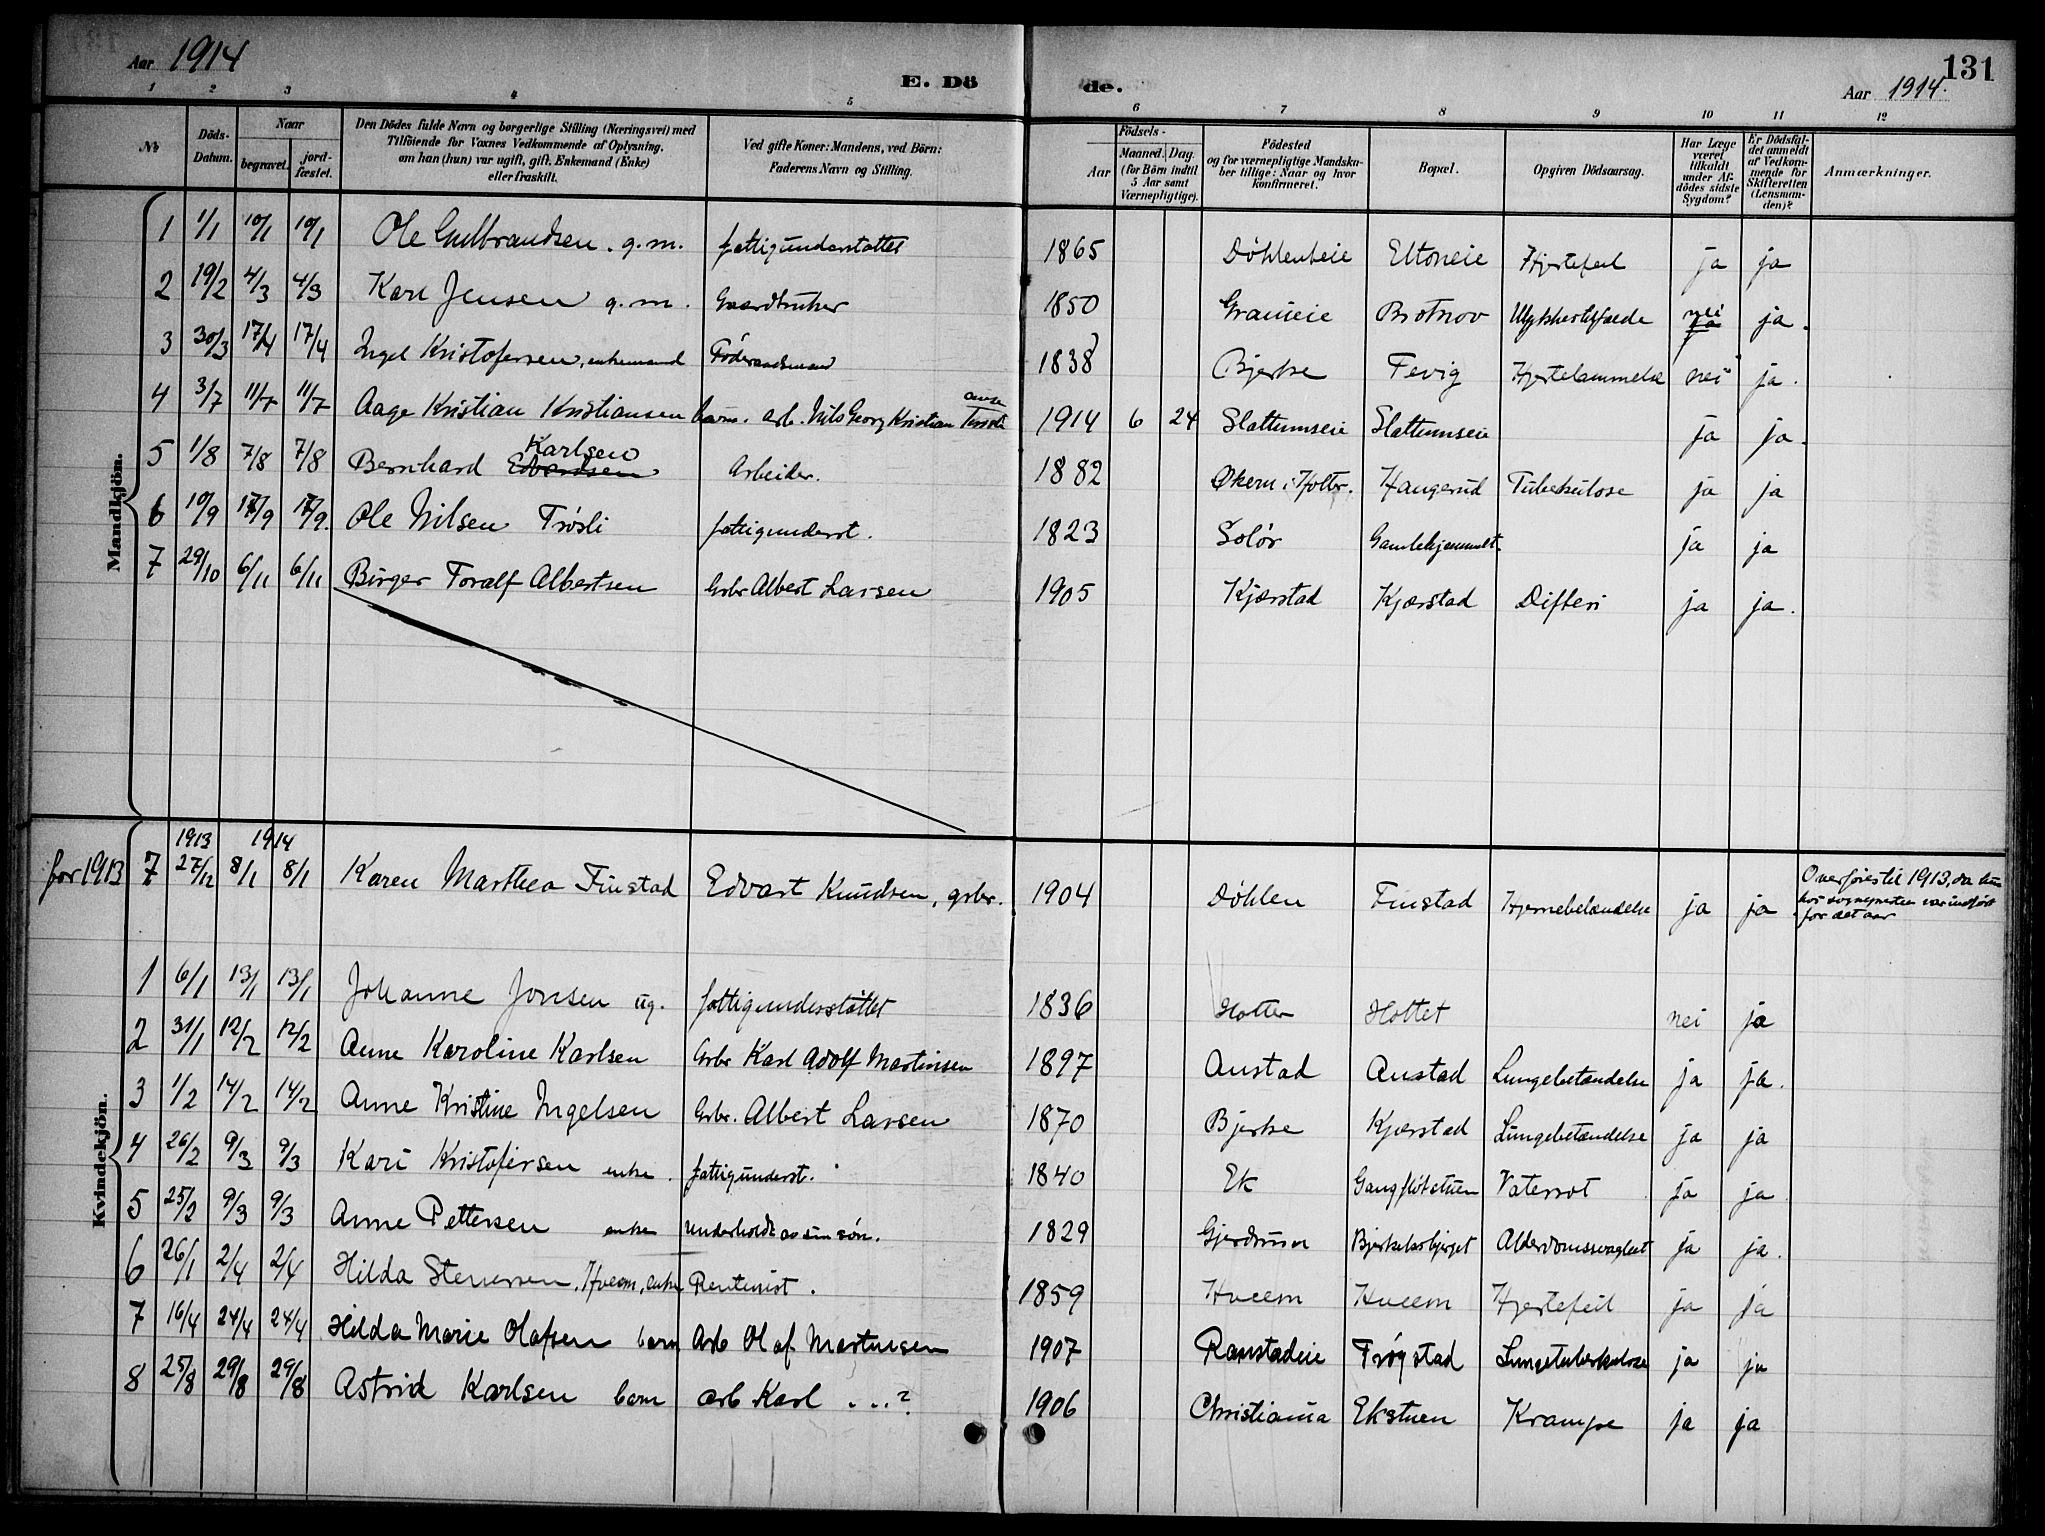 Aar 1914
E. Döde.
Aar 1914.
131
1 2 3 4 5 6 7 8 9 10 11 12
No
Döds-Datum.
Naar
begravet.
jord-fæstet.
Den Dödes fulde Navn og borgerlige Stilling (Næringsvei) med
Tilföiende for Voxnes Vedkommende af Oplysning,
om han (hun) var ugift, gift, Enkemand (Enke)
eller fraskilt.
Ved gifte Koner: Mandens, ved Börn:
Faderens Navn og Stilling.
Födsels-
Aar
Maaned. Dag.
(for Börn indtil
5 Aar samt
Værnepligtige).
Födested
og for værnepligtige Mandska-
ber tillige: Naar og hvor
konfirmeret.
Bopæl.
Opgiven Dödsaarsag.
Har Læge
været
tilkaldt
under Af-
dödes sidste
Sygdom?
Er Dödsfal-
det anmeldt
af Vedkom-
mende for
Skifteretten
(Lensman-
den)?
Anmærkninger.
Mandkjön.
1 1/1 10/1 10/1 Ole Gulbrandsen. g.m. fattigunderstöttet 1865 Döhleneie Eltoneie Hjertefeil ja ja
2 19/2 4/3 4/3 Karl Jensen g.m. Gaardbruker 1850 Graneie Brotnov Ulykkestilfælde nei ja ja.
3 30/3 17/4 17/4 Ingel Kristofersen, enkemand Föderaadsmand 1838 Bjerke Tevig Hjertelammelse nei ja.
4 3/7 11/7 11/7 Aage Kristian Kristiansen barn. arb. Nils Georg Kristian 1914 6 24 Slattumseie Slattumseie ja ja.
5 1/8 7/8 7/8 Bernhard Edvardsen Karlsen Arbeider. 1882 Økern i Holter. Haugerud Tuberkulose ja ja
6 10/9 17/9 17/9. Ole Nilsen Trösli fattigunderst. 1823 Solör Gamlehjemmet. ja ja
7 29/10 6/11 6/11 Birger Toralf Albertsen Grbr Albert Larsen 1905 Kjærstad Kjærstad Difteri ja ja.
Kvindekjön.
1913 1914
for 1913 7 27/12 8/1 8/1 Karen Marthea Finstad Edvart Knudsen, grbr. 1904 Döhlen Finstad Hjernebetændelse ja ja Overföres til 1913, da hun
hos sognepresten var indfört
for det aar
1 6/1 13/1 13/1 Johanne Jonsen ug. fattigunderstöttet 1836 Holter Holtet nei ja
2 31/1 12/2 12/2 Anne Karoline Karlsen Grbr Karl Adolf Martinsen 1897 Austad Austad Lungebetændelse ja ja.
3 1/2 14/2 14/2 Anne Kristine Ingelsen Grbr. Albert Larsen 1870 Bjerke Kjærstad Lungebetændelse ja ja
4 26/2 9/3 9/3 Kari Kristofersen enke. fattigunderst. 1840 Ek Gangflötstuen Vatersot ja ja
5 25/2 9/3 9/3 Anne Pettersen enke underholdt av sin sön. 1829 Gjerdrum Bjerkelsbjerget Alderdomssvaghet ja ja.
6 26/1 2/4 2/4 Hilda Stenersen, Hveem, enke Rentenist. 1859 Hveem Hveem Hjertefeil ja ja
7 16/4 24/4 24/4 Hilda Marie Olafsen barn Arb Olaf Martinsen 1907 Ranstadeie Frögstad Lungetuberkulose ja ja
8 25/8 29/8 29/8 Astrid Karlsen barn arb Karl ...? 1906 Christiania Ekstuen Krampe ja ja